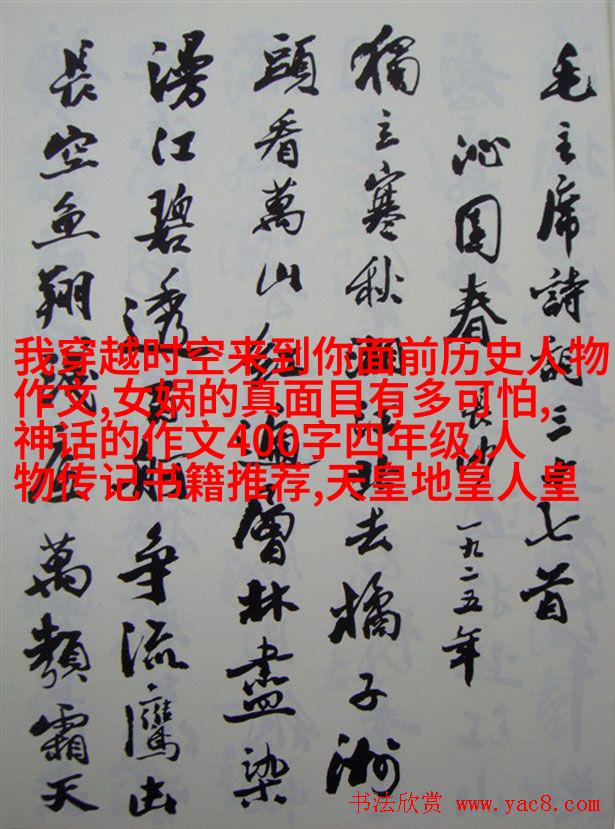 毛主席詩詞三十七首
沁園春 長沙 一九二五年
獨立寒秋湘江北去橘子洲
頭看萬山紅遍層林盡染
漫江碧透百舸争流鷹击
長空魚翔淺底萬類霜天
我穿越时空来到你面前历史人物
作文,女娲的真面目有多可怕,
神话的作文400字四年级,人
物传记书籍推荐,天皇地皇人皇
书法欣赏 www.yac8.com